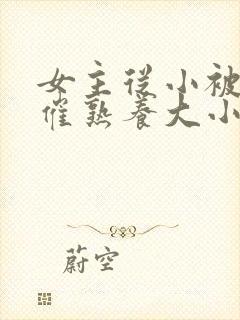 女主从小被
催熟养大小
蔚空